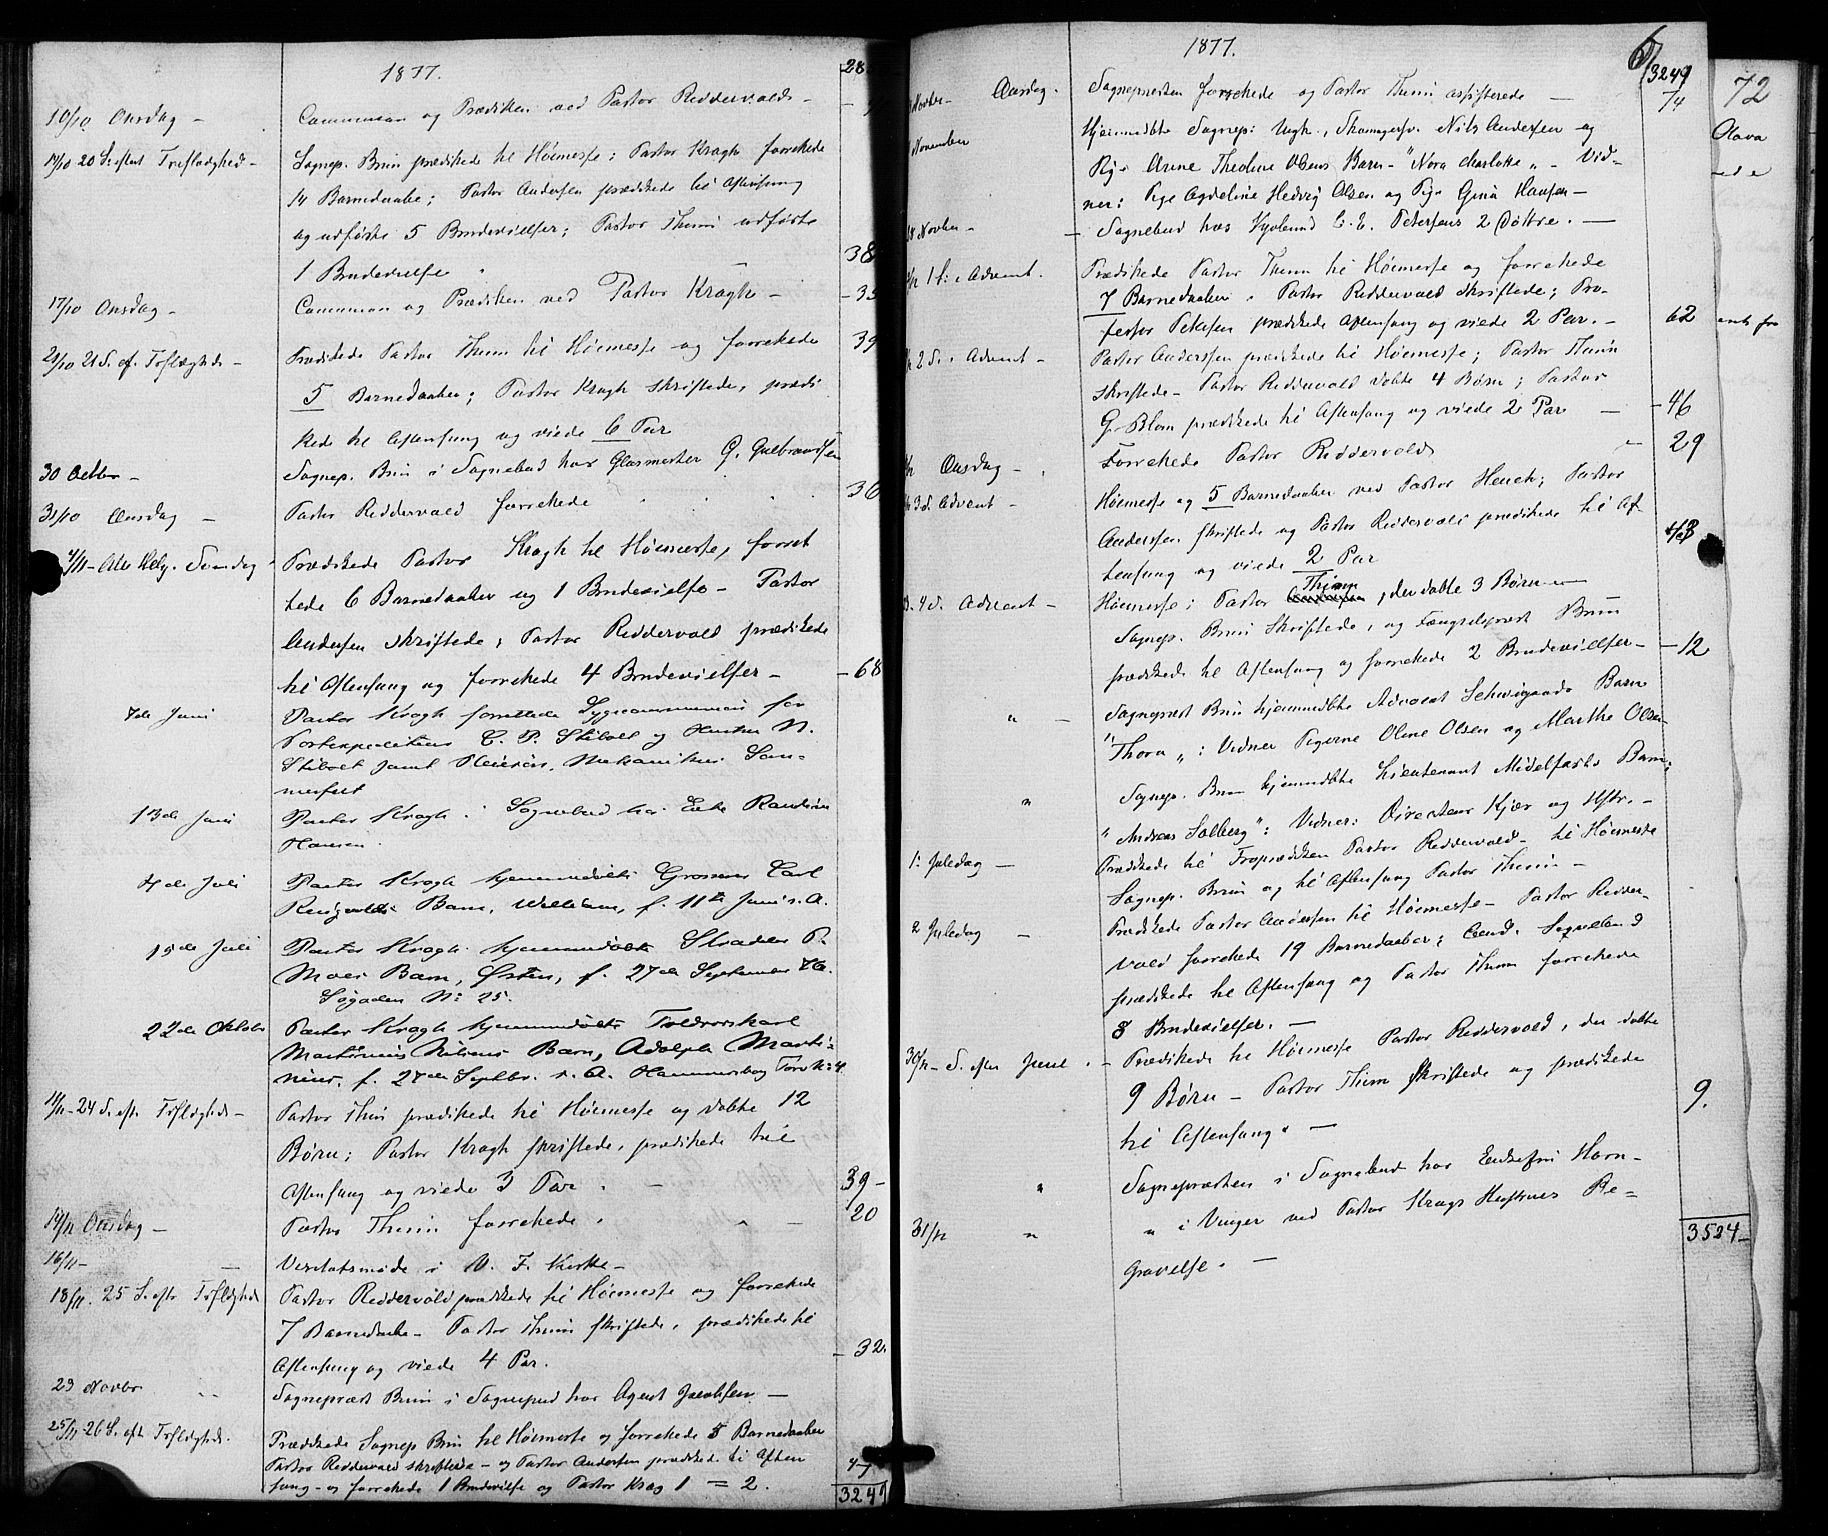 1877.
28
10/10 Onsdag – Communion og Prædiken ved Pastor Reddervold –
14/10 20 S. efter Trefoldighed – Sognep. Bruun prædikede til Høimesse; Pastor Kragh forrettede
14 Barnedaabe; Pastor Andersen prædikede til Aftensang
og udførte 5 Brudevielser; Pastor Thurn udførte
1 Brudevielse 38
17/10 Onsdag – Communion og Prædiken ved Pastor Kragh –
21/10 21 S. ef. Trefoldigh. – Prædikede Pastor Thurn til Høimesse og forrettede 39
5 Barnedaaber; Pastor Kragh skriftede, prædi
kede til Aftensang og viede 6 Par
30 Octbr – Sognep. Bruun i Sognebud hos Glasmester G. Gulbrandsen
31/10 Onsdag – Pastor Reddervold forrettede 36
4/11 – Alle Helg. Søndag Prædikede Pastor Kragh til Høimesse, forret
tede 6 Barnedaaber og 1 Brudevielse – Pastor
Andersen skriftede; Pastor Reddervold prædikede
til Aftensang og forrettede 4 Brudevielser – – 68
7de Juni Pastor Kragh forrettede Sygecommunion for
C. P. Stibolt og Hustru N.
Stibolt samt
13de Juni Pastor Kragh i Sognebud hos Enke
Hansen.
4de Juli Pastor Kragh hjemmedøbte Grosserer Carl
Barn, William, f. 11te Juni d. A.
15de Juli Pastor Kragh hjemmedøbte P.
Moes Barn, Østen, f. 27de September 76.
Søgaden No: 25.
22de Oktober Pastor Kragh hjemmedøbte
Martinius Nilsens Barn, Adolph Marti-
nius, f. 27de Septbr. d. A. Hammersborg Torv No: 4.
11/11 – 24 S. eft. Trefoldighed – Pastor Thurn prædikede til Høimesse og døbte 12
Børn; Pastor Kragh skriftede, prædikede til
Aftensang og viede 3 Par. – 39 –
14/11 Onsdag – Pastor Thurn forrettede. – 20
16/11 – Visitatsmøde i V. F. Kirke –
18/11. 25 S. eftr Trefoldighed Pastor Reddervold prædikede til Høimesse og forrettede
7 Barnedaabe – Pastor Thurn skriftede, prædikede til
Aftensang og viede 4 Par. – 32.
23 Novbr Sognepræst Bruun i Sognebud hos Agent Jacobsen –
25/11 26 S. eft. Trefoldighed. Prædikede Sognep Bruun til Høimesse og forrettede 8 Barnedaaber
Pastor Reddervold skriftede – og Pastor Andersen prædikede til Aften
sang – og forrettede 1 Brudevielse og Pastor Krag 1 = 2.
3249
1877.
3249
Novbr – Onsdag. Sognepresten forrettede og Pastor Thurn assisterede – 74
November Hjemmedøbte Sognep: Nils Andersen og
Pig. Anne Theoline Olsens Barn – "Nora Charlotte" – Vid-
ner: Pige Hedvig Olsen og Pige Gina Hansen –
Novber – Sognebud hos C. E. Petersens 2 Døttre. –
1 S. i Advent. Prædikede Pastor Thurn til Høimesse og forrettede
7 Barnedaaber. Pastor Reddervold skriftede; Pro-
fessor Petersen prædikede Aftensang og viede 2 Par. – 62
2 S. i Advent – Pastor Andersen prædikede til Høimesse; Pastor Thurn
skriftede – Pastor Reddervold døbte 4 Børn; Pastor
G. Blom prædikede til Aftensang og viede 2 Par – – 46
Onsdag – Forrettede Pastor Reddervold – 29
3 S. Advent – Høimesse og 5 Barnedaaber ved Pastor Heuch; Pastor
Andersen skriftede og Pastor Reddervold prædikede til Af
tensang og viede 2 Par
4 S. Advent – Høimesse: Pastor Thurn, der døbte 3 Børn –
Sognep. Bruun skriftede, og Fængselsprest Bruun
prædikede til Aftensang og forrettede 2 Brudevielser – – 12
" – Sogneprest Bruun hjemmedøbte Advocat Schweigaards Barn
"Thora": Vidner Pigerne Oline Olsen og Marthe Olsen
" Sognep. Bruun hjemmedøbte Lieutenant Midelfarts Barn
"Andreas Solberg": Vidner: Directeur Kjær og Hstr. –
1: Juledag – Prædikede til Froprædiken Pastor Reddervold – til Høimesse
Sognep. Bruun og til Aftensang Pastor Thurn –
2 Juledag – Prædikede Pastor Andersen til Høimesse – Pastor Redder-
vold forrettede 19 Barnedaaber; Cand.
prædikede til Aftensang og Pastor Thurn forrettede
8 Brudevielser. –
30/12 – S. efter Juul. – Prædikede til Høimesse Pastor Reddervold, der døbte
9 Børn – Pastor Thurn skriftede og prædikede 9.
til Aftensang. –
" Sognepræsten i Sognebud hos Enkefru Horn –
31/12 " " i Vinger ved Pastor Krags Hustrues Be-
gravelse. – 3524 –
72
Olava